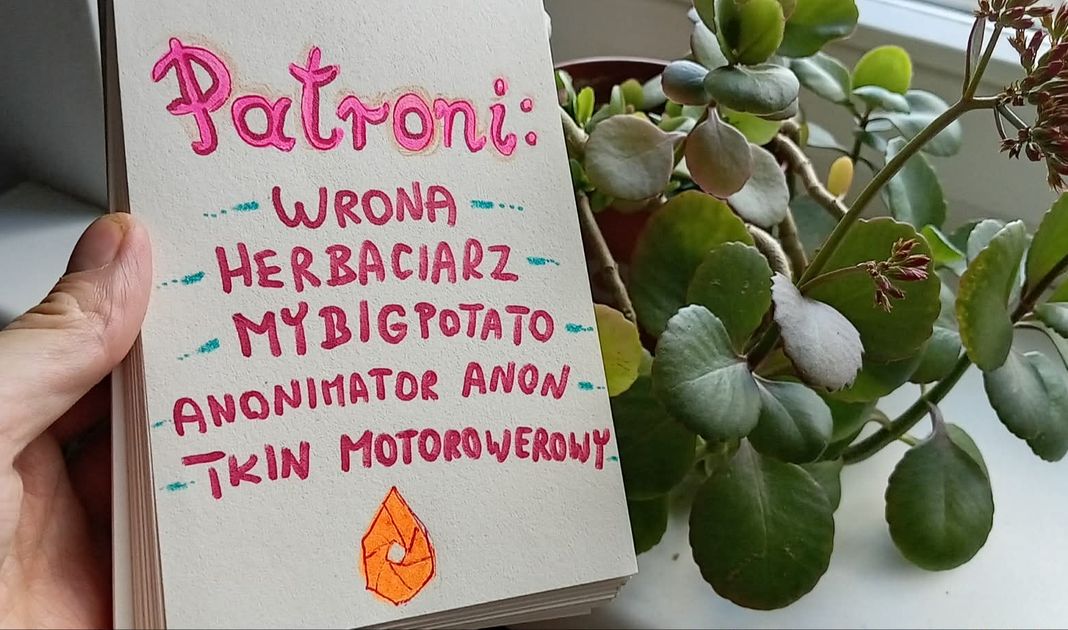 Patroni:
WRONA
HERBACIARZ
MYBIGPOTATO
ANONIMATOR ANON
TKIN MOTOROWEROWY